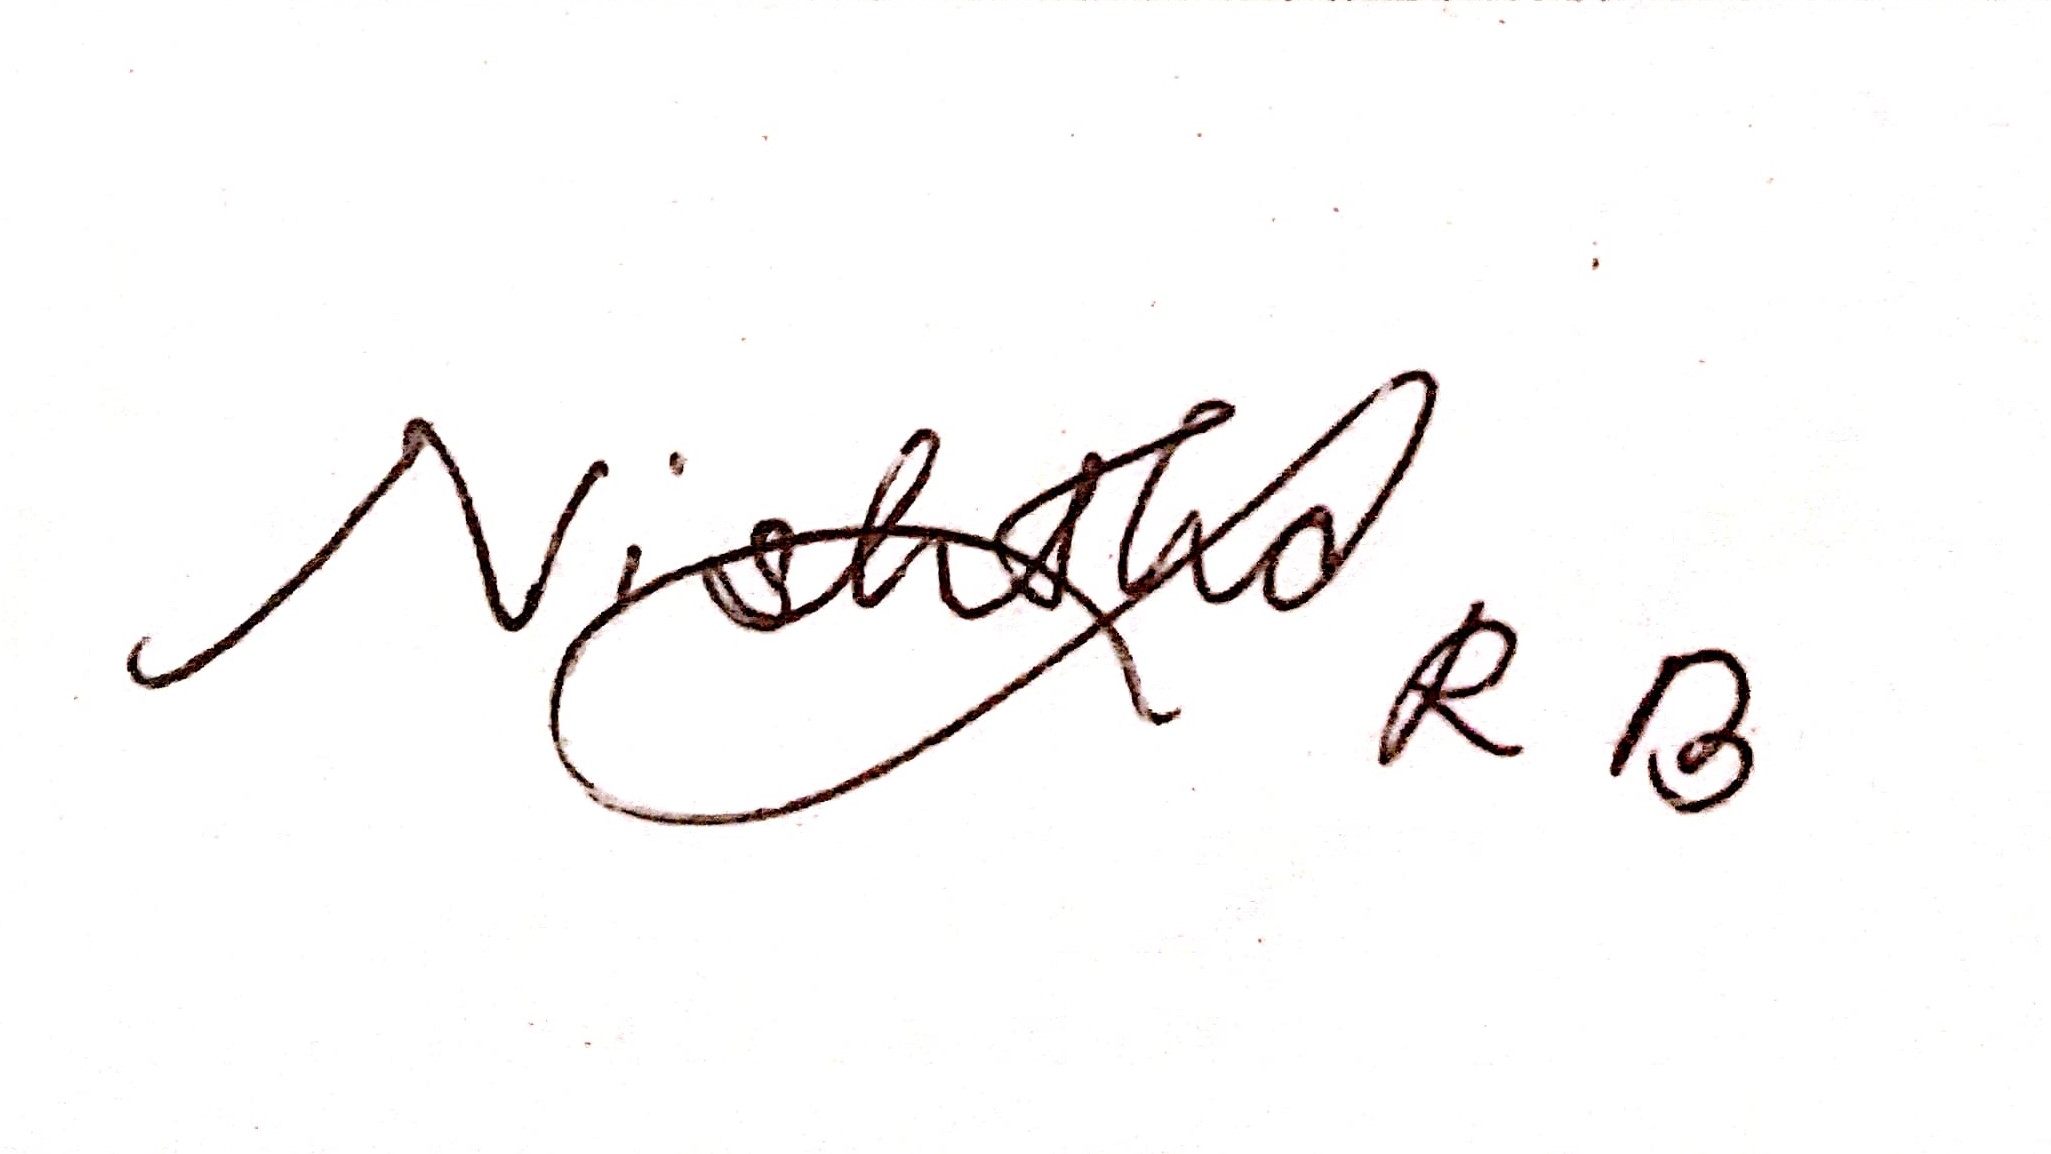 Nishatha R B